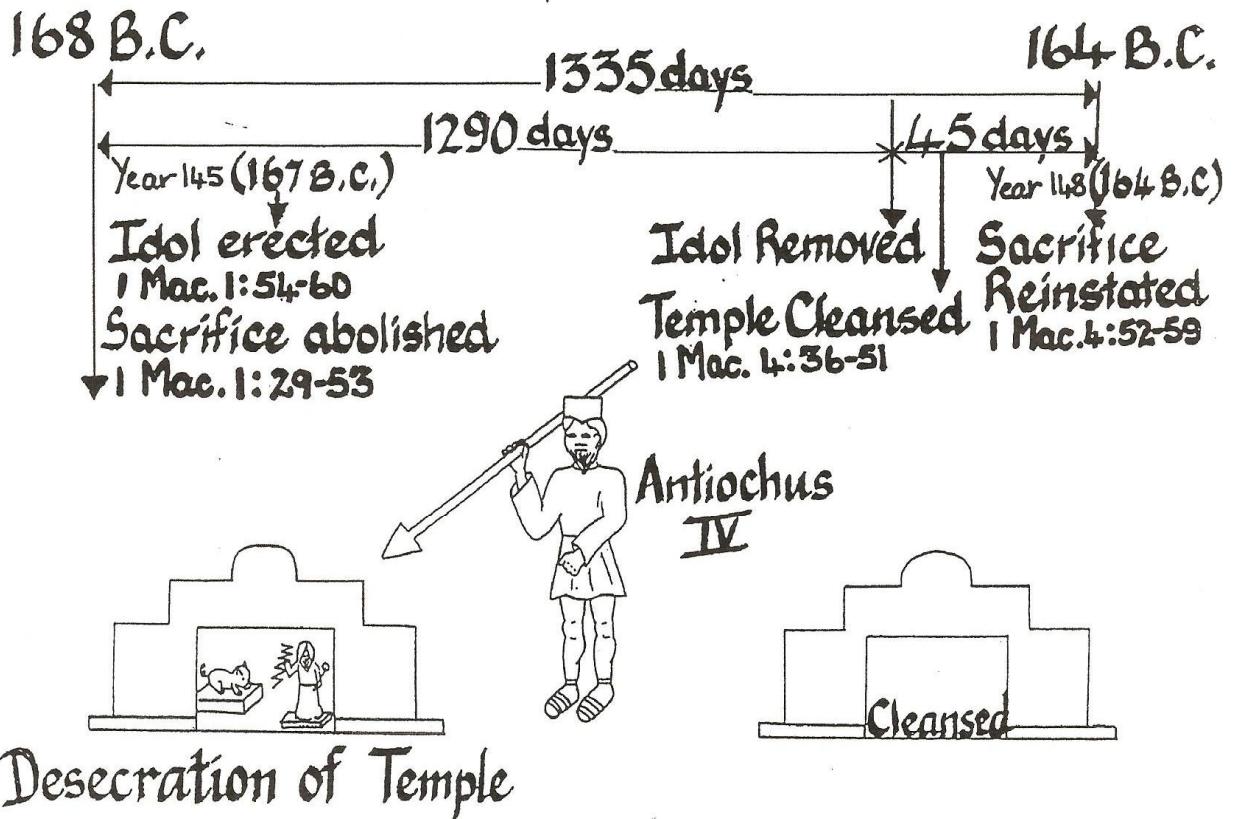 168 B.C.
164 B.C.
1335 days
1290 days
45 days
Year 145 (167 B.C.)
Year 148 (164 B.C)
Idol erected
1 Mac. 1:54-60
Sacrifice abolished
1 Mac. 1:29-53
Idol Removed
Temple Cleansed
1 Mac. 4:36-51
Sacrifice
Reinstated
1 Mac. 4:52-59
Antiochus
IV
Cleansed
Desecration of Temple